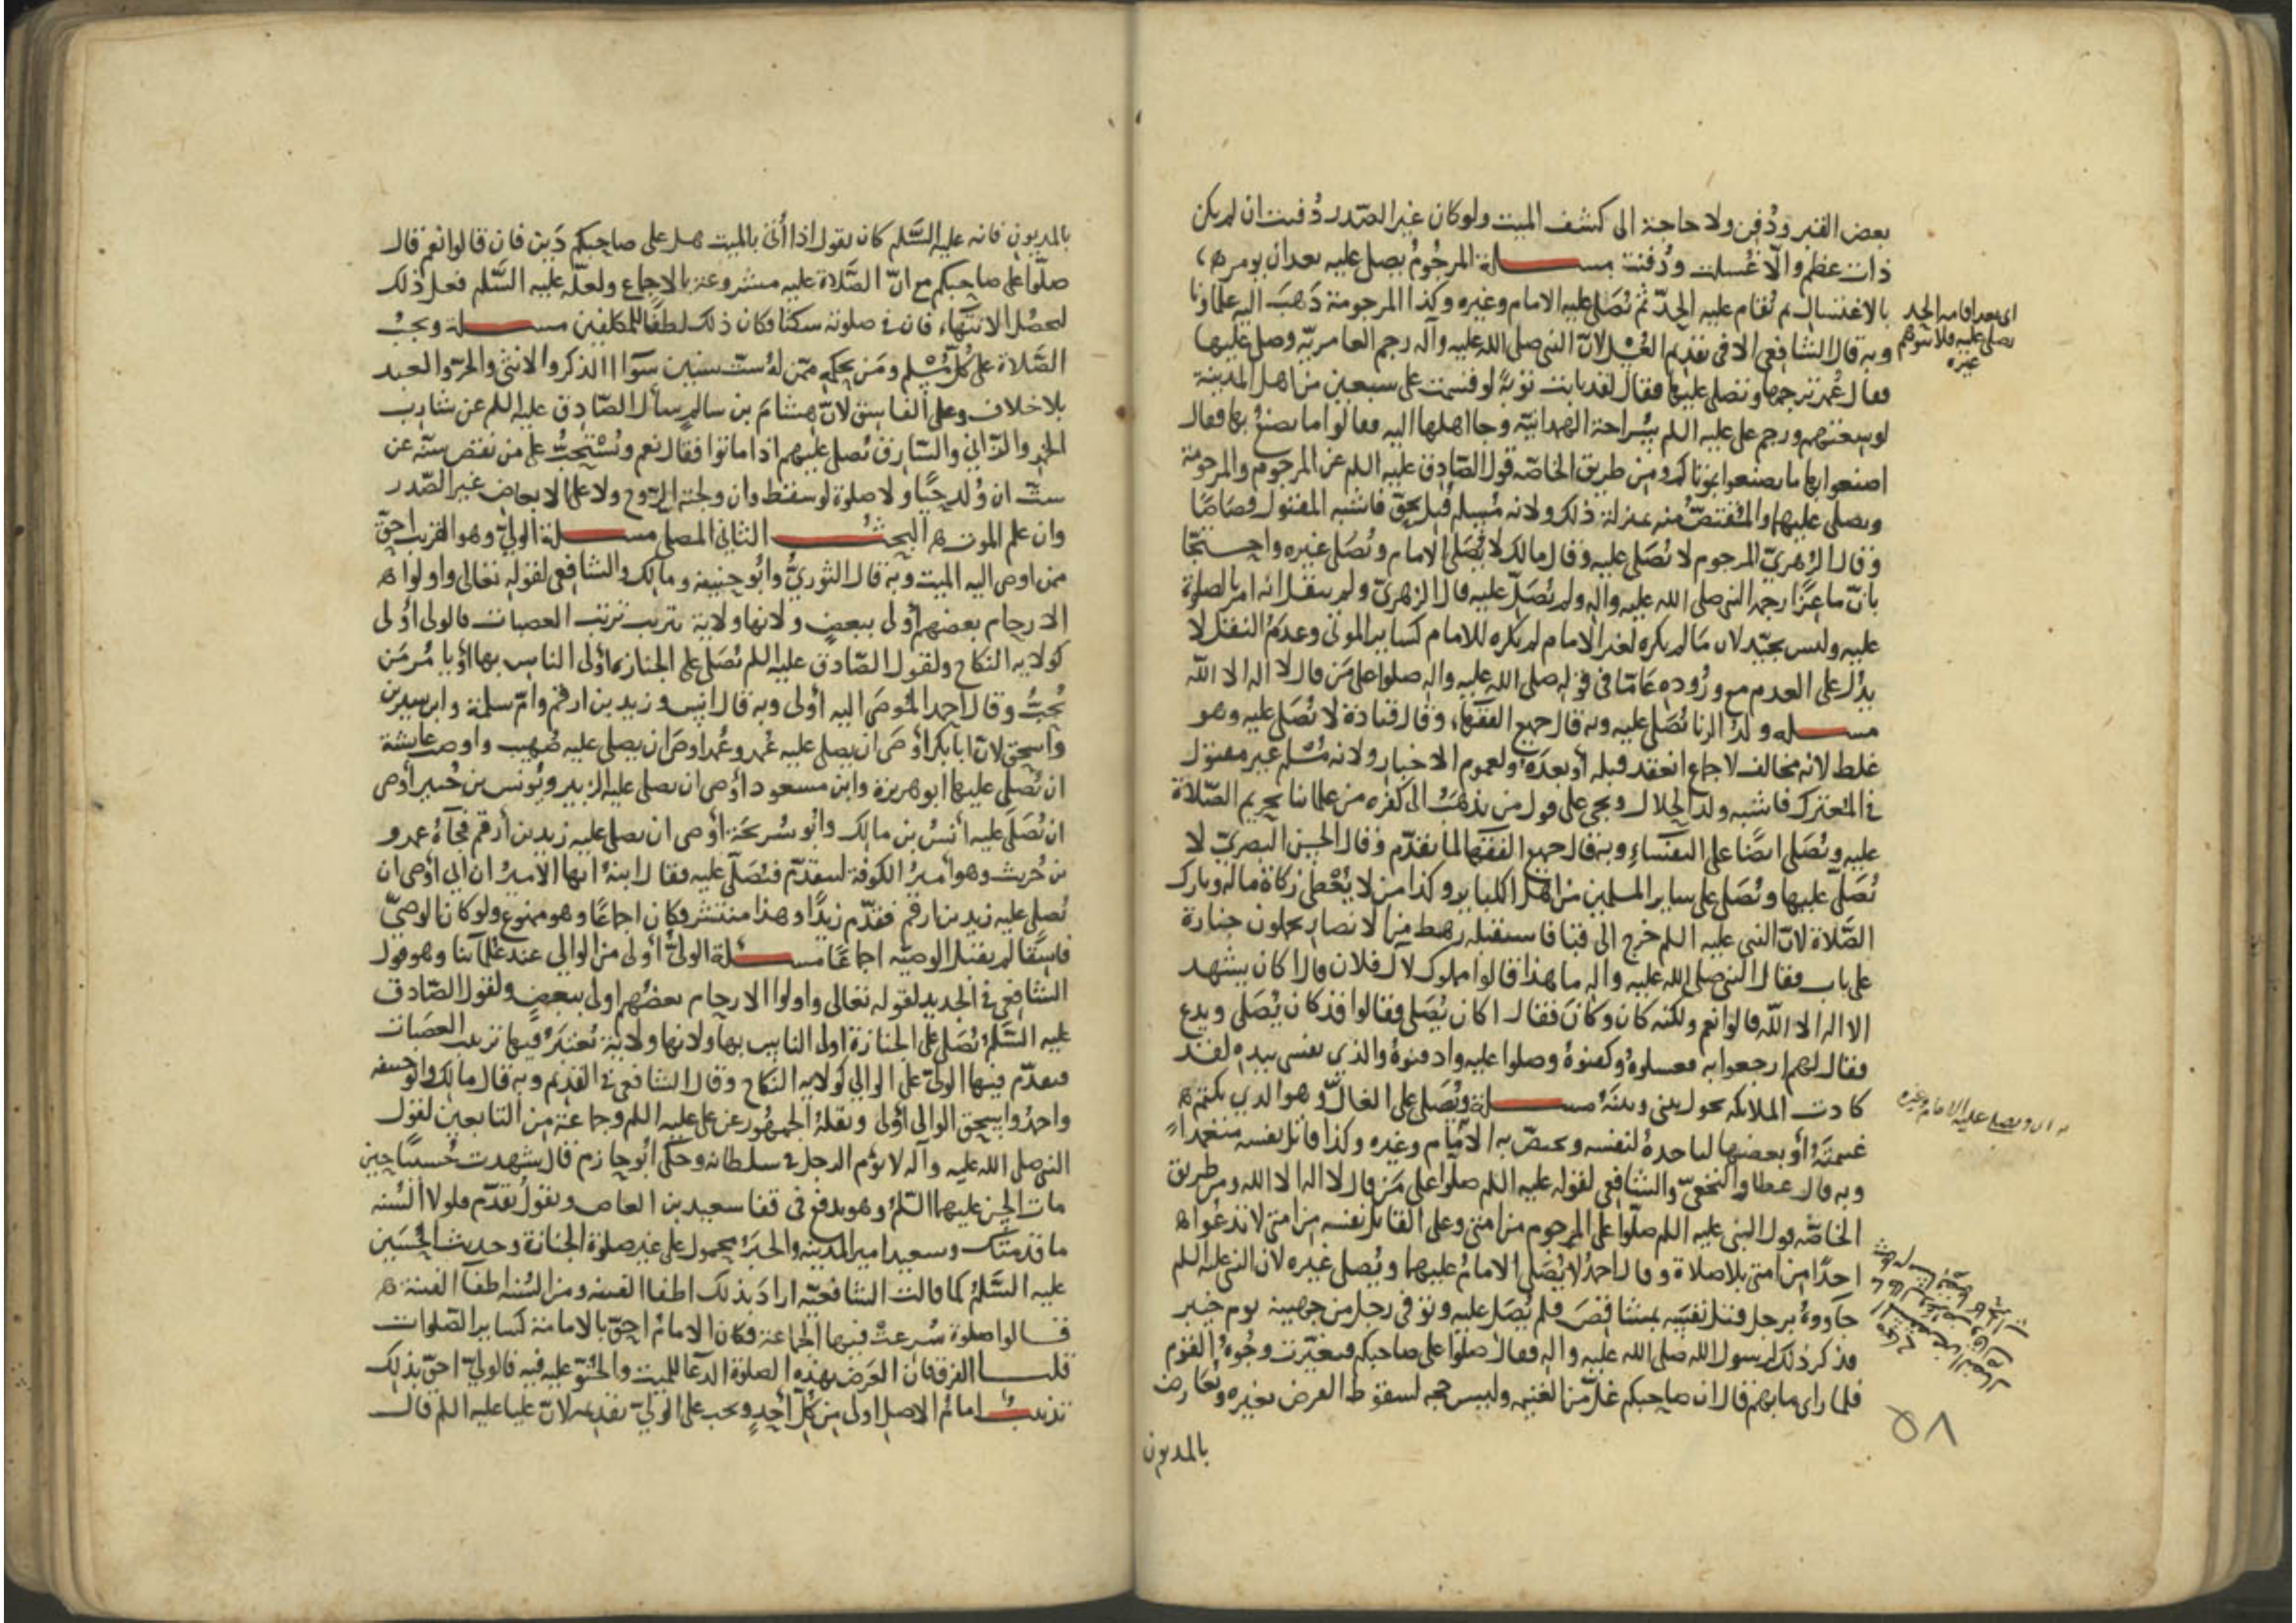 بعض القبر ودُفن ولا حاجة الى كشف الميت ولو كان غير الصدر دُفنت ان لم يكن
ذات عظم والّا غُسلت ودُفنت مسـلة المرجُومُ يصلى عليه بعد ان يومر
بالاغتسال ثم تُقام عليه الحدّ ثم يُصَلى عليه الامام وغيره وكذا المرجومة ذَهبَ اليه علماونا
وبه قال الشافعى الا فى تقديم الغُسْل لانّ النبى صلى الله عليه وآله رجم العامريّه وصلى عليها
فقال عُمر ترجمها وتصلى عليها فقال لقد تابت توبةً لو قسمت على سبعين من اهل المدينة
لوسعتهم ورجم على عليه السلم سُراحة الهمدانيّه وجا اهلها اليه فقالوا ما نصنعُ بها فقال
اصنعوا بها ما تصنعوا بموتاكم ومن طريق الخاصّه قول الصّادق عليه السلم عن المرجوم والمرجومة
ويصلى عليهما والمُقتصّ منه بمنزلة ذلك ولانه مُسلم قُتِل بحق فاشبه المقتول قصاصًا
وقال الزُهرىّ المرجوم لا يُصَلى عليه وقال مالك لا يُصَلى الامام ويُصَلى غيره واحـتجّا
بانّ ماعِزًا رجمه النبى صلى الله عليه واله ولم يُصَلّ عليه قال الزهرىّ ولم ينقل انه امر بالصلوة
عليه وليس بجيّد لان مَا لم يكره لغير الامام لم يكره للامام كساير الموتى وعدمُ النقل لا
يدُل على العدم مع وُرُوده عَامًّا فى قوله صلى الله عليه واله صلوا على مَن قال لا اله الا الله
مسـله ولدُ الزنا يُصَلى عليه وبه قال جميع الفقهاء وقال قتادة لا يُصَلى عليه وهو
غلط لانه مخالف لاجماع انعقد قبله أو بعدَه ولعموم الاخبار ولانه مُسْلم غير مقتول
فى المُعترك فاشبه ولد الحلال ويجى على قول من يذهَبُ الى كفره من علمائنا تحريم الصّلاة
عليه ويُصَلى ايضًا على النفساءِ وبه قال جميع الفقها لما تقدّم وقال الحسن البصرىّ لا
يُصَلّى عليها ويُصَلى على ساير المسلمين من اهل الكباير وكذا من لا يُعْطى زكاة ماله وتارك
الصّلاة لانّ النبى عليه السلم خرج الى قبا فاستقبله رهط من الانصار يحملون جنازة
على باب فقال النبى صلى الله عليه واله ما هذا قالوا مملوك لآل فلان قال اكان يشهد
الا اله الا الله قالوا نعم ولكنه كان وكانَ فقال اكان يُصَلى فقالوا قد كان يُصَلى ويدع
فقال لهم ارجعوا به فغسلوهُ وكفنوهُ وصلوا عليه وادفنوهُ والذي نفسى بيده لقد
كادت الملائكه تحول بينى وبينَهُ مسـلة ويُصَلى على الغالّ وهو الذي يكتم
غنيمَتَهُ او بعضها لياخذهُ لنفسه ويختصّ به الامام وغيره وكذا قاتل نفسه متعمدا
وبه قال عطا والنخعىّ والشافعى لقوله عليه السلم صلّوا على مَن قال لا اله الا الله ومن طريق
الخاصّه قول النبى عليه السلم صلّوا على المرجوم من امتى وعلى القاتل نفسه من امتى لا تدعُوا
احدًا من امتى بلا صلاة وقال احمدُ لا يُصَلى الامامُ عليهما ويُصلى غيره لان النبى عليه السلم
جآووهُ برجل قتل نفسَه بمشاقصَ فلم يُصَل عليه وتوفى رجل من جهينة يوم خيبر
فذكر ذلك لرسول الله صلى الله عليه واله فقال صلوا على صاحبكم فتغيّرت وُجُوهُ القوم
فلما راى ما بهم قال ان صاحبكم غلّ من الغنيمه وليس حجه لسقوط الفرض بغيره وتُعَارض
بالمديون
اى بعد اقامه الحد
يصلى عليه فلا يتوهم
غيره
اى ويصلى عليه الامام وغيره
٥٨
بالمديون فانه عليه السَّلم كان يقول اذا أُتى بالميت هل على صاحبكم دَين فان قالوا نعم قال
صلّوا على صاحبكم مع انّ الصَّلاة عليه مشروعة بالاجماع ولعلّه عليه السَّلم فعل ذلك
ليحصُل الانتهاء فان فى صلوته سكنا فكان ذلك لطفًا للمكلفين مسـلة ويجبُ
الصَّلاة على كُل مُسْلم ومَن بحكمه ممّن لهُ ست سنين سَوآا الذكر والانثى والحرّ والعبد
بلا خلاف وعلى الفاسق لانّ هشامَ بن سالم سأل الصّادق عليه السلم عن شارب
الخمر والزانى والسّارق يُصلى عليهم اذا ماتوا فقال نعم ويُسْتحبُّ على من نقص سنّه عن
ستّ ان وُلد حيًّا ولا صلوة لو سقط وان ولجته الرّوح ولا على الابعاض غير الصّدر
وان علم الموت البحثُ الثانى المصلى مسـلة الولىّ وهو القريب احقّ
ممن اوصى اليه الميت وبه قال الثورىُّ وابُو حنيفة ومالك والشافعى لقوله تعالى واولوا
الارحام بعضهم أولى ببعضٍ ولانها ولاية تترتب ترتب العصبات فالولى أوْلى
كولايه النكاح ولقول الصّادق عليه السلم يُصَلى على الجنازه أولى الناس بها أو يامُر مَن
يُحبُّ وقال احمد المُوصَى اليه أولى وبه قال انس وزيد بن ارقم وامّ سلمة وابن سيرين
واسحق لانّ ابا بكر أوصَى ان يصلى عليه عُمر وعُمر اوصَى ان يصلى عليه صُهيب واوصت عايشة
ان يُصَلى عليها ابو هريرة وابن مسعود أوصى ان يصلى عليه الزبير ويُونس بن جُبير أوصى
ان يُصَلى عليه أنسُ بن مالك وابُو سُريحَة أوصى ان يصلى عليه زيد بن أرقم فجآهُ عمرو
بن حُريث وهو أميرُ الكوفة ليتقدّم فيُصَلّى عليه فقال ابنهُ ايها الاميرُ ان ابى أوصى ان
يُصلى عليه زيد بن ارقم فقدّم زيدًا وهذا منتشر فكان اجماعًا وهو ممنوع ولو كان الوصىّ
فاسقًا لم يقبل الوصيّه اجماعًا مسـلة الولىُّ أولى من الوالى عند علمآئنا وهو قول
الشافعى فى الجديد لقوله تعالى واولوا الارحام بعضُهم اولى ببعضٍ ولقول الصّادق
عليه السَّلم يُصَلى على الجنازة اولى الناس بها ولانها ولاية تُعتبرُ فيها ترتيب العصَبات
فيقدّم فيها الولىّ على الوالى كولايه النكاح وقال الشافعى فى القديم وبه قال مالك وابو حنيفه
واحمدُ واسحق الوالى أولى ونقلهُ الجمهُور عن على عليه السلم وجماعة من التابعين لقول
النبى صلى الله عليه وآله لا يؤم الرجل فى سلطانه وحكى ابُو حازم قال شهدت حُسينًا حين
مات الحسن عليهما السّلم وهو يدفع فى قفا سعيد بن العاص ويقولُ تقدّم فلولا السُنه
ما قدمتك وسعيد امير المدينه والخبرُ محمول على غير صلوة الجنازة وحديث الحُسَين
عليه السَّلم كما قالت الشافعيّه ارادَ بذلك اطفاا الفتنه ومن السُنه اطفآ الفتنة
قـالوا صلوة شُرعتْ فيها الجماعة فكان الامامُ احقّ بالامامة كساير الصّلوات
قلـنا الفرق فان الغرَض بهذه الصلوة الدعا للميت والحُنوّ عليه فيه فالولىّ احقّ بذلك
تذنيبُ امامُ الاصل اولى من كل أحدٍ ويجب على الولىّ تقديمه لانّ عليا عليه السلم قال